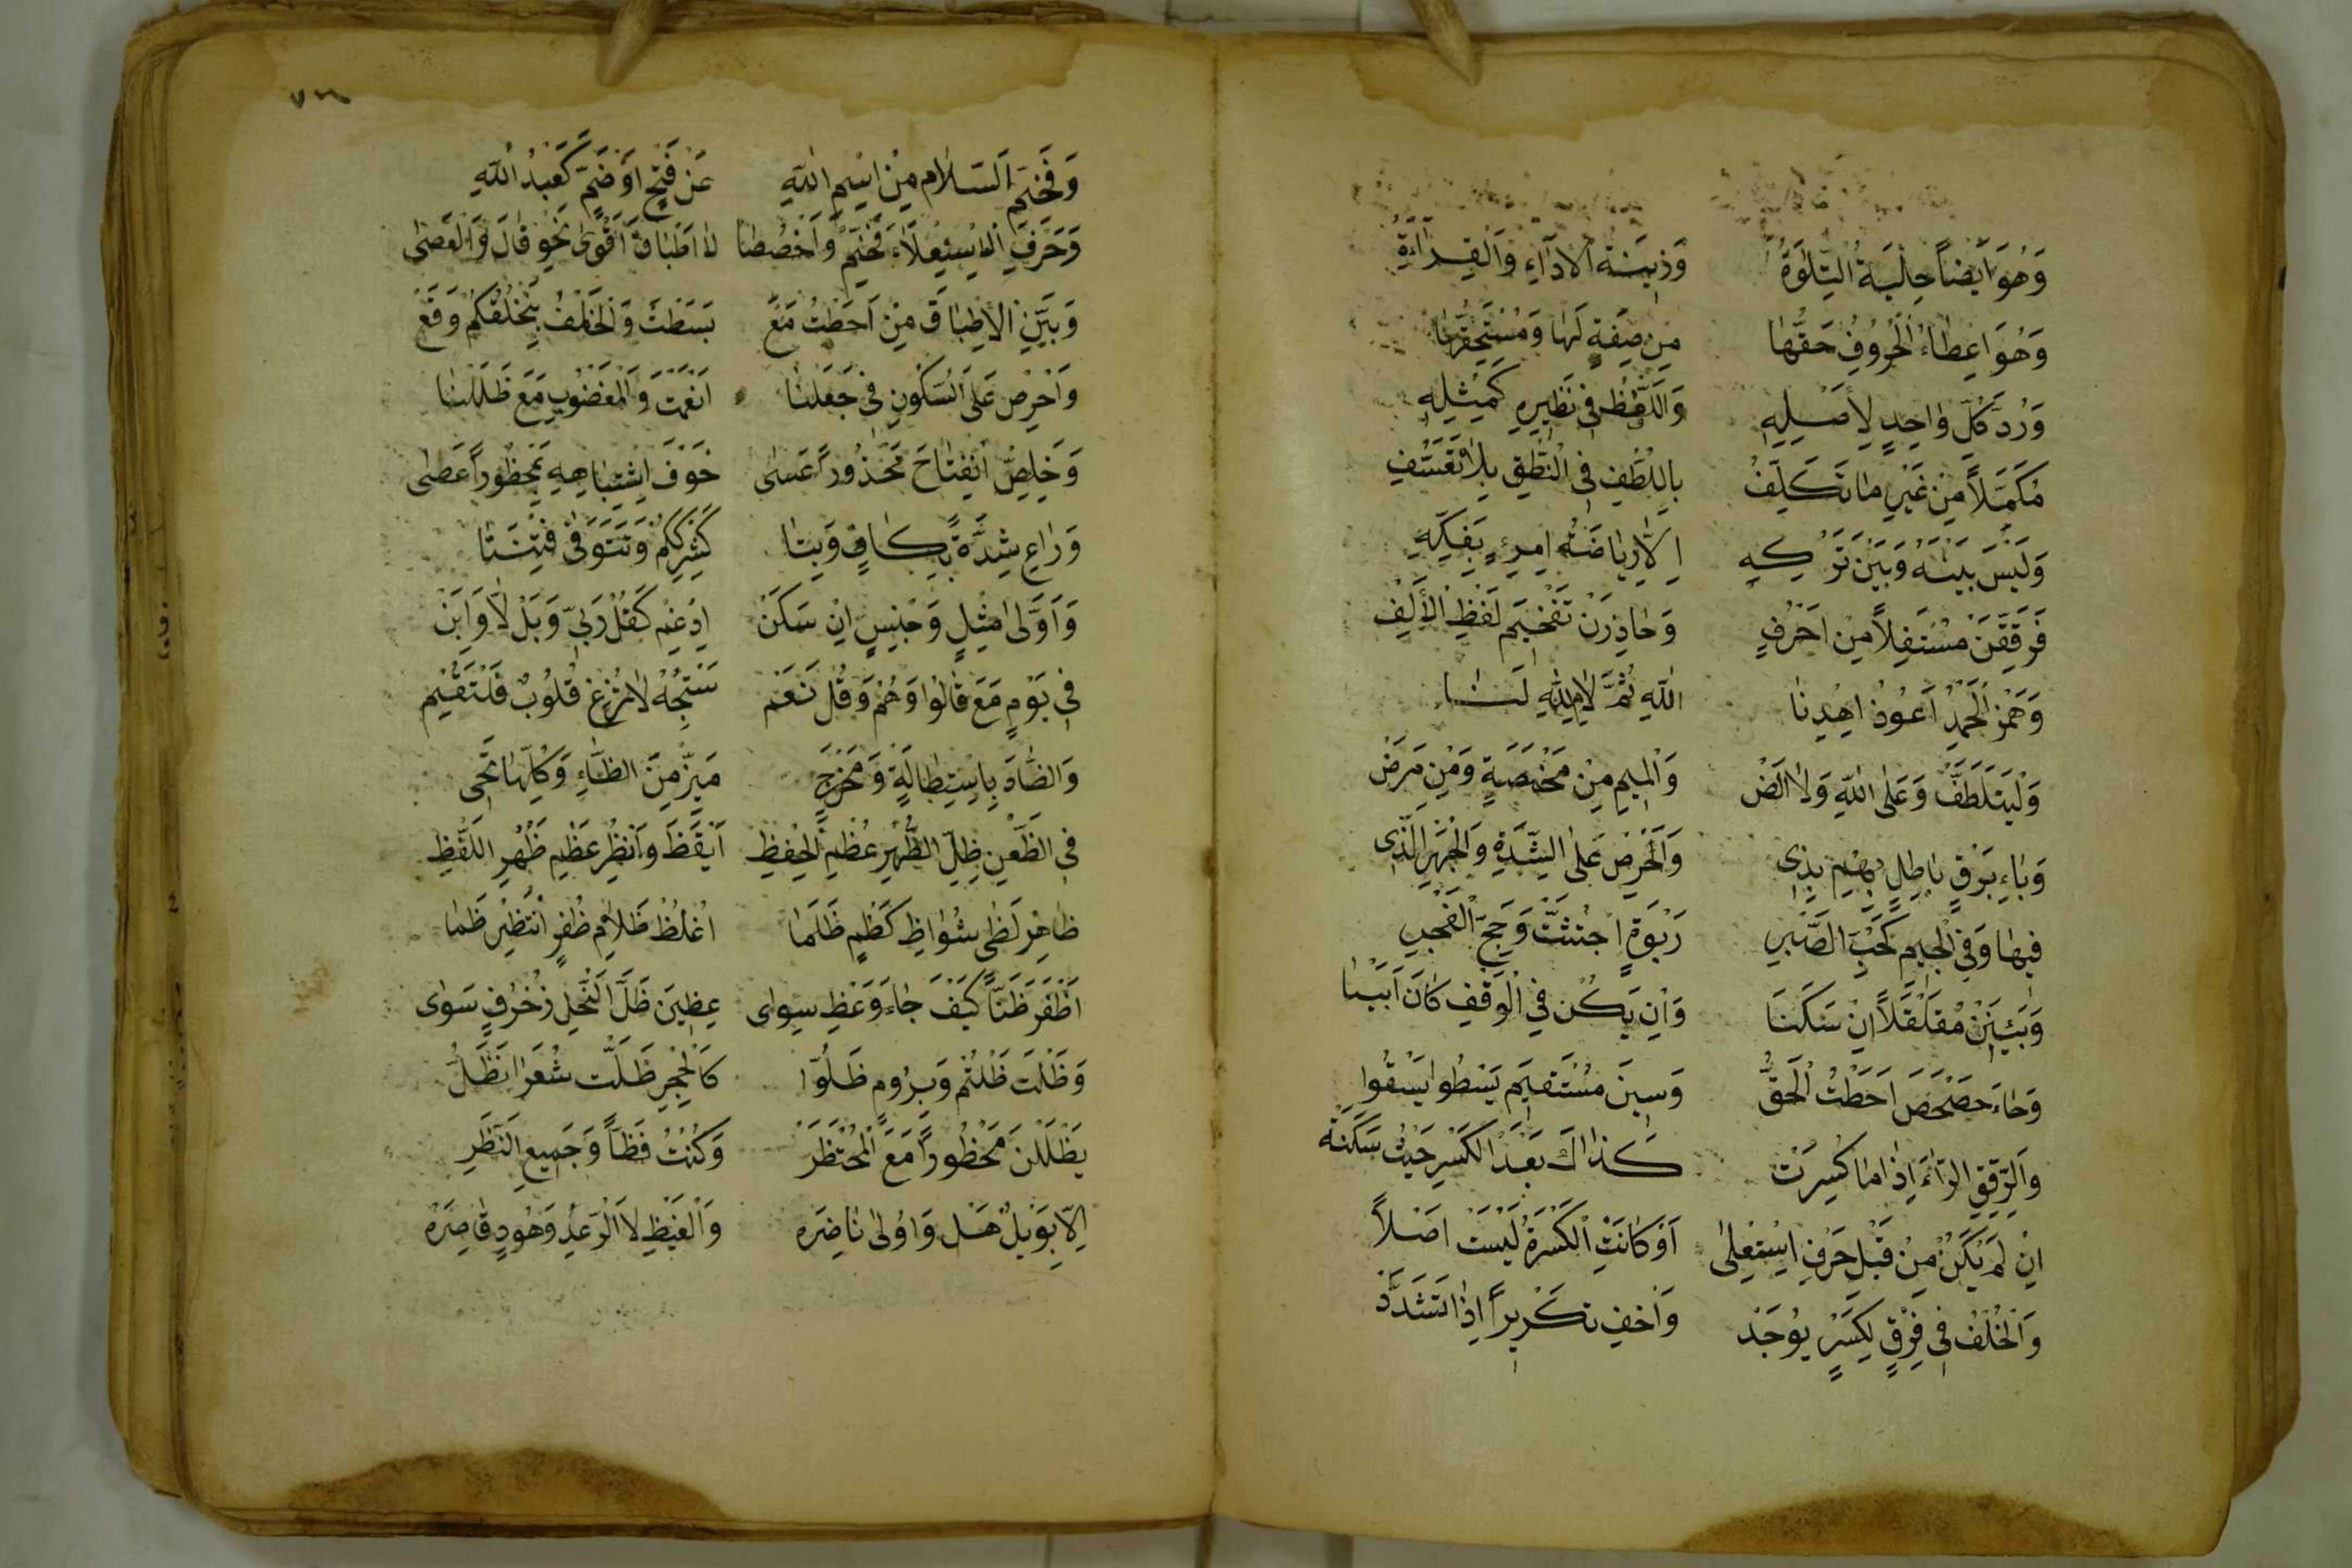 وَهُوَ اَيْضًا حِلْيَةُ التِّلَاوَةِ وَزِينَةُ الْاَدَاءِ وَالْقِرَاءَةِ
وَهُوَ اِعْطَاءُ الْحُرُوفِ حَقَّهَا مِنْ صِفَةٍ لَهَا وَمُسْتَحَقَّهَا
وَرَدُّ كُلِّ وَاحِدٍ لِاَصْلِهِ وَاللَّفْظُ فِى نَظِيرِهِ كَمِثْلِهِ
مُكَمِّلاً مِنْ غَيْرِ مَا تَكَلُّفِ بِاللُّطْفِ فِى النُّطْقِ بِلَا تَعَسُّفِ
وَلَيْسَ بَيْنَهُ وَبَيْنَ تَرْكِهِ اِلَّا رِيَاضَةُ امْرِئٍ بِفَكِّهِ
فَرَقِّقَنْ مُسْتَفِلاً مِنْ اَحْرُفٍ وَحَاذِرَنْ تَفْخِيمَ لَفْظِ الْاَلِفِ
وَهَمْزَ اَلْحَمْدُ اَعُوذُ اِهْدِنَا اَللهِ ثُمَّ لَامِ لِلّٰهِ لَنَا
وَلْيَتَلَطَّفْ وَعَلَى اللهِ وَلَا الضْ وَالْمِيمِ مِنْ مَخْمَصَةٍ وَمِنْ مَرَضْ
وَبَاءِ بَرْقٍ بَاطِلٍ بِهِمْ بِذِى وَاَحْرِصْ عَلَى الشِّدَّةِ وَالْجَهْرِ الَّذِى
فِيهَا وَفِى الْجِيمِ كَحُبِّ الصَّبْرِ رَبْوَةٍ اجْتُثَّتْ وَحَجِّ الْفَجْرِ
وَبَيِّنَنْ مُقَلْقَلاً اِنْ سَكَنَا وَاِنْ يَكُنْ فِى الْوَقْفِ كَانَ اَبْيَنَا
وَحَاءَ حَصْحَصَ اَحَطْتُ الْحَقُّ وَسِينَ مُسْتَقِيمَ يَسْطُوا يَسْقُوا
وَرَقِّقِ الرَّاءَ اِذَا مَا كُسِرَتْ كَذَاكَ بَعْدَ الْكَسْرِ حَيْثُ سَكَنَتْ
اِنْ لَمْ يَكُنْ مِنْ قَبْلِ حَرْفِ اسْتِعْلَى اَوْ كَانَتِ الْكَسْرَةُ لَيْسَتْ اَصْلاً
وَالْخُلْفُ فِى فِرْقٍ لِكَسْرٍ يُوجَدُ وَاَخْفِ تَكْرِيراً اِذَا تُشَدَّدُ
٧٢٨
وَفَخِّمِ السَّلَام مِنْ اسْمِ اللهِ عَنْ فَتْحٍ اَوْ ضَمٍّ كَعَبْدُ اللهِ
وَحَرْفَ الْاِسْتِعْلَاءِ فَخِّمْ وَاخْصُصَا لَا اطْبَاقَ اَقْوَى نَحْوِ قَالَ وَالْعَصَى
وَبَيِّنِ الْاِطْبَاقَ مِنْ اَحَطْتُ مَعْ بَسَطْتَ وَالْخُلْفُ بِنَخْلُقْكُمْ وَقَعْ
وَاَحْرِصْ عَلَى السُّكُونِ فِى جَعَلْنَا اَنْعَمْتَ وَالْمَغْضُوبِ مَعَ ظَلَلْنَا
وَخَلِصُ انْفِتَاحَ مَحْذُوراً عَسَى خَوْفَ اشْتِبَاهِهِ بِمَحْظُوراً عَصَى
وَرَاعِ شِدَّةً بِكَافٍ وَبِتَا كَشِرْكِكُمْ وَتَتَوَفَّى فِتْنَتَا
وَاَوَّلَى مِثْلٍ وَجِنْسٍ اِنْ سَكَنْ اَدْغِمْ كَقُلْ رَبِّ وَبَلْ لَا وَاَبِنْ
فِى يَوْمٍ مَعَ قَالُوا وَهُمْ وَقُلْ نَعَمْ سَبِّحْهُ لَا تُزِغْ قُلُوبَ فَلْتَقُمْ
وَالضَّادَ بِاسْتِطَالَةٍ وَمَخْرَجِ مَيِّزْ مِنَ الظَّاءِ وَكُلُّهَا تَجِى
فِى الظَّعْنِ ظِلِّ الظُّهْرِ عُظْمِ الْحِفْظِ اَيْقَظَ وَاَنْظِرْ عَظْمِ ظَهْرِ اللَّفْظِ
ظَاهِرْ لَظَى شُوَاظِ كَظْمٍ ظَلَمَا اُغْلُظْ ظَلَامَ ظُفْرٍ انْتَظِرْ ظَمَا
اَظْفَرَ ظَنّاً كَيْفَ جَاءَ وَعَظِ سِوَاى عِضِينَ ظَلَّ النَّحْلِ زُخْرُفٍ سَوَاى
وَظَلْتَ ظَلْتُمْ وَبِرُومٍ ظَلُّوا كَالْحِجْرِ ظَلَّتْ شُعَرَا نَظَلُّ
يَظْلَلْنَ مَحْظُوراً مَعَ الْمُحْتَظِرِ وَكُنْتَ فَظّاً وَجَمِيعِ النَّظَرِ
اِلَّا بِوَيْلٌ هَلْ وَاُولَى نَاضِرَهْ وَالْغَيْظِ لَا الرَّعْدِ وَهُودٍ قَاصِرَهْ